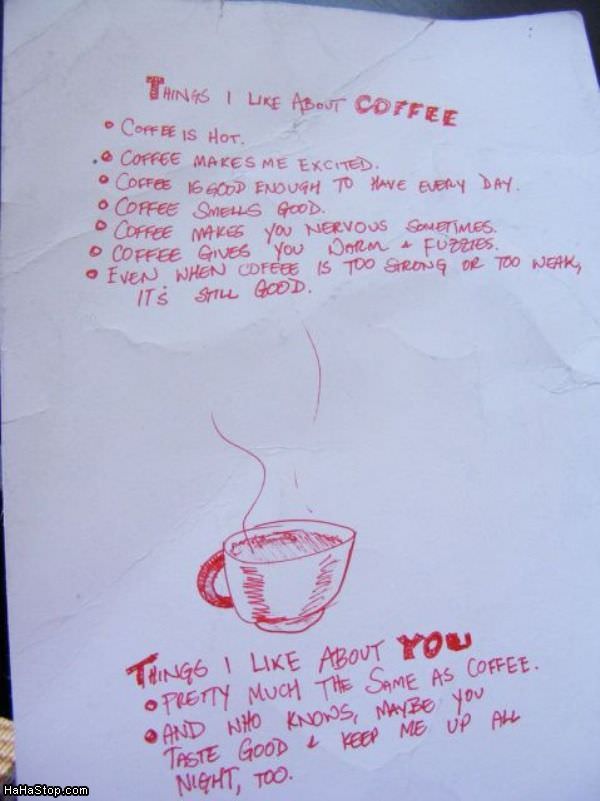 THINGS I LIKE ABOUT COFFEE
• COFFEE IS HOT.
• COFFEE MAKES ME EXCITED.
• COFFEE IS GOOD ENOUGH TO HAVE EVERY DAY.
• COFFEE SMELLS GOOD.
• COFFEE MAKES YOU NERVOUS SOMETIMES.
• COFFEE GIVES YOU WARM & FUZZIES.
• EVEN WHEN COFFEE IS TOO STRONG OR TOO WEAK,
IT'S STILL GOOD.
THINGS I LIKE ABOUT YOU
• PRETTY MUCH THE SAME AS COFFEE.
• AND WHO KNOWS, MAYBE YOU
TASTE GOOD & KEEP ME UP ALL
NIGHT, TOO.
HaHaStop.com